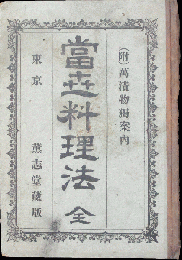 (附)萬漬物獨案内
當世料理法 全
東京 薫志堂藏版